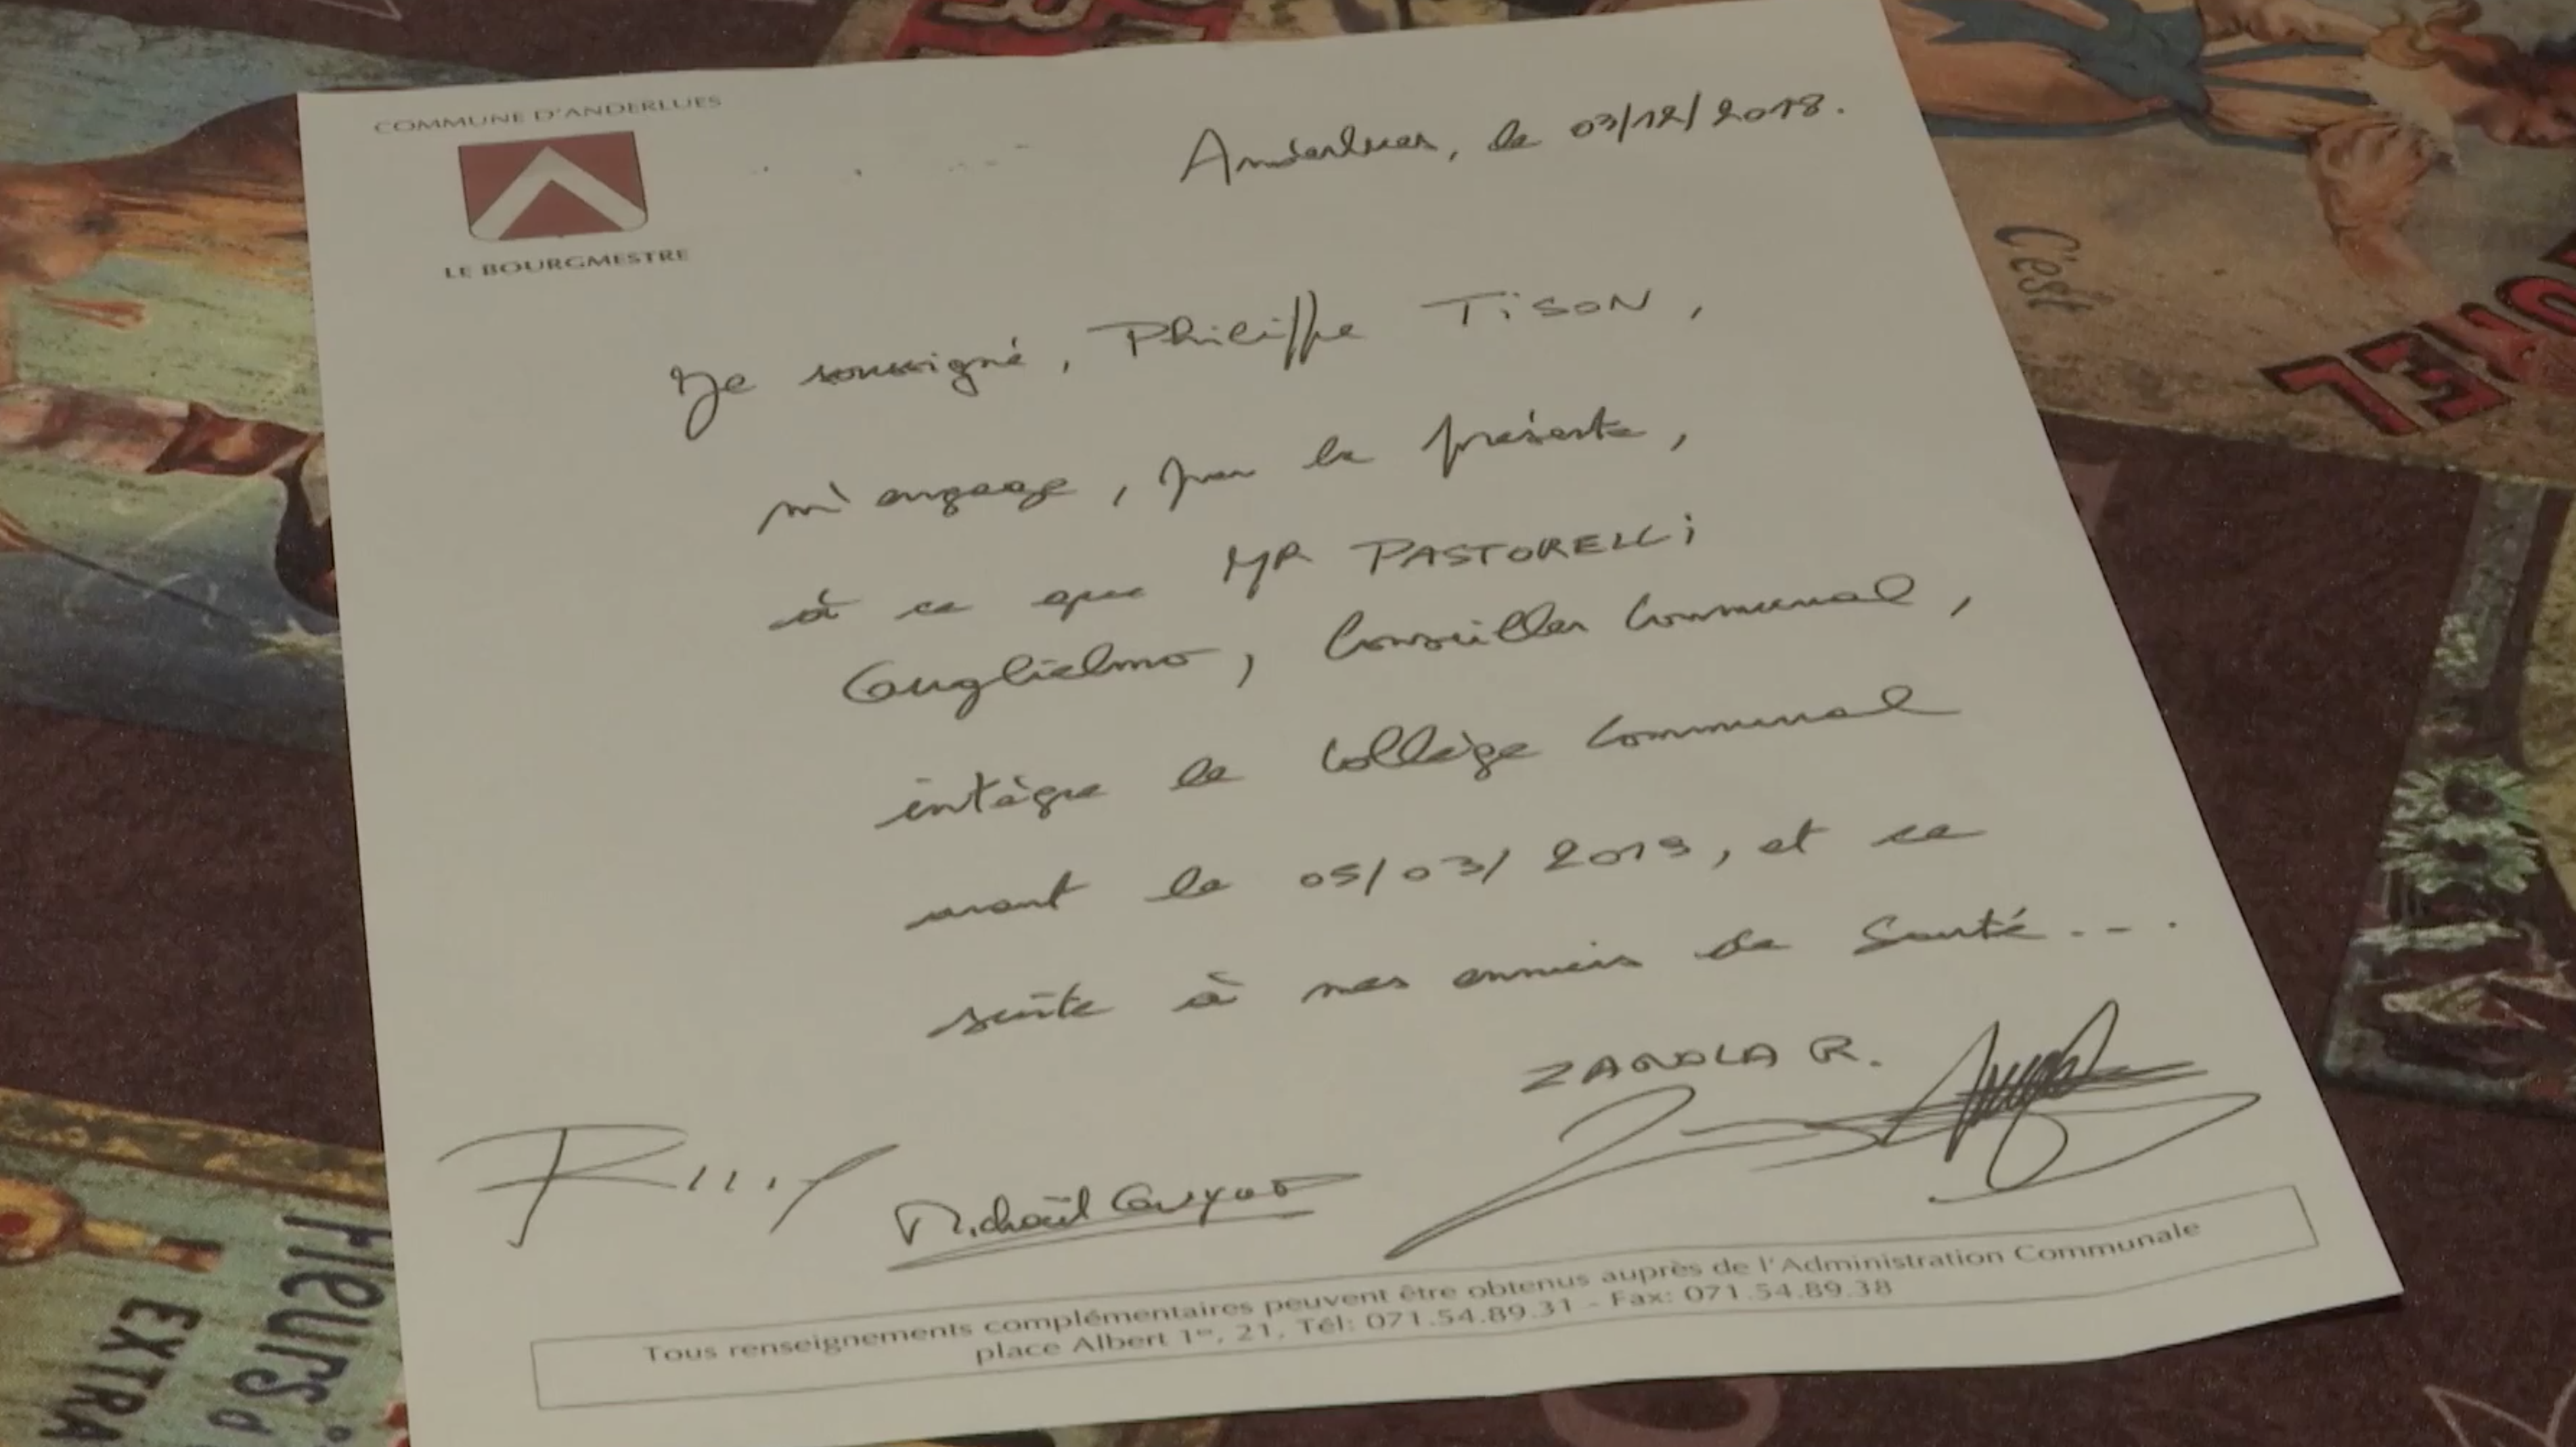 COMMUNE D'ANDERLUES
LE BOURGMESTRE
Anderlues, le 03/12/2018.
Je soussigné, Philippe TiSON,
m'engage, par la présente,
à ce que MR PASTORELLi
Guglielmo, Conseiller Communal,
intègre le Collège Communal
avant le 05/03/2019, et ce
suite à mes ennuis de Santé...
ZANOLA R.
Michaël Guyot
Tous renseignements complémentaires peuvent être obtenus auprès de l'Administration Communale
place Albert 1er, 21, Tél: 071.54.89.31 - Fax: 071.54.89.38
C'est
Fleurs d
EXTRA